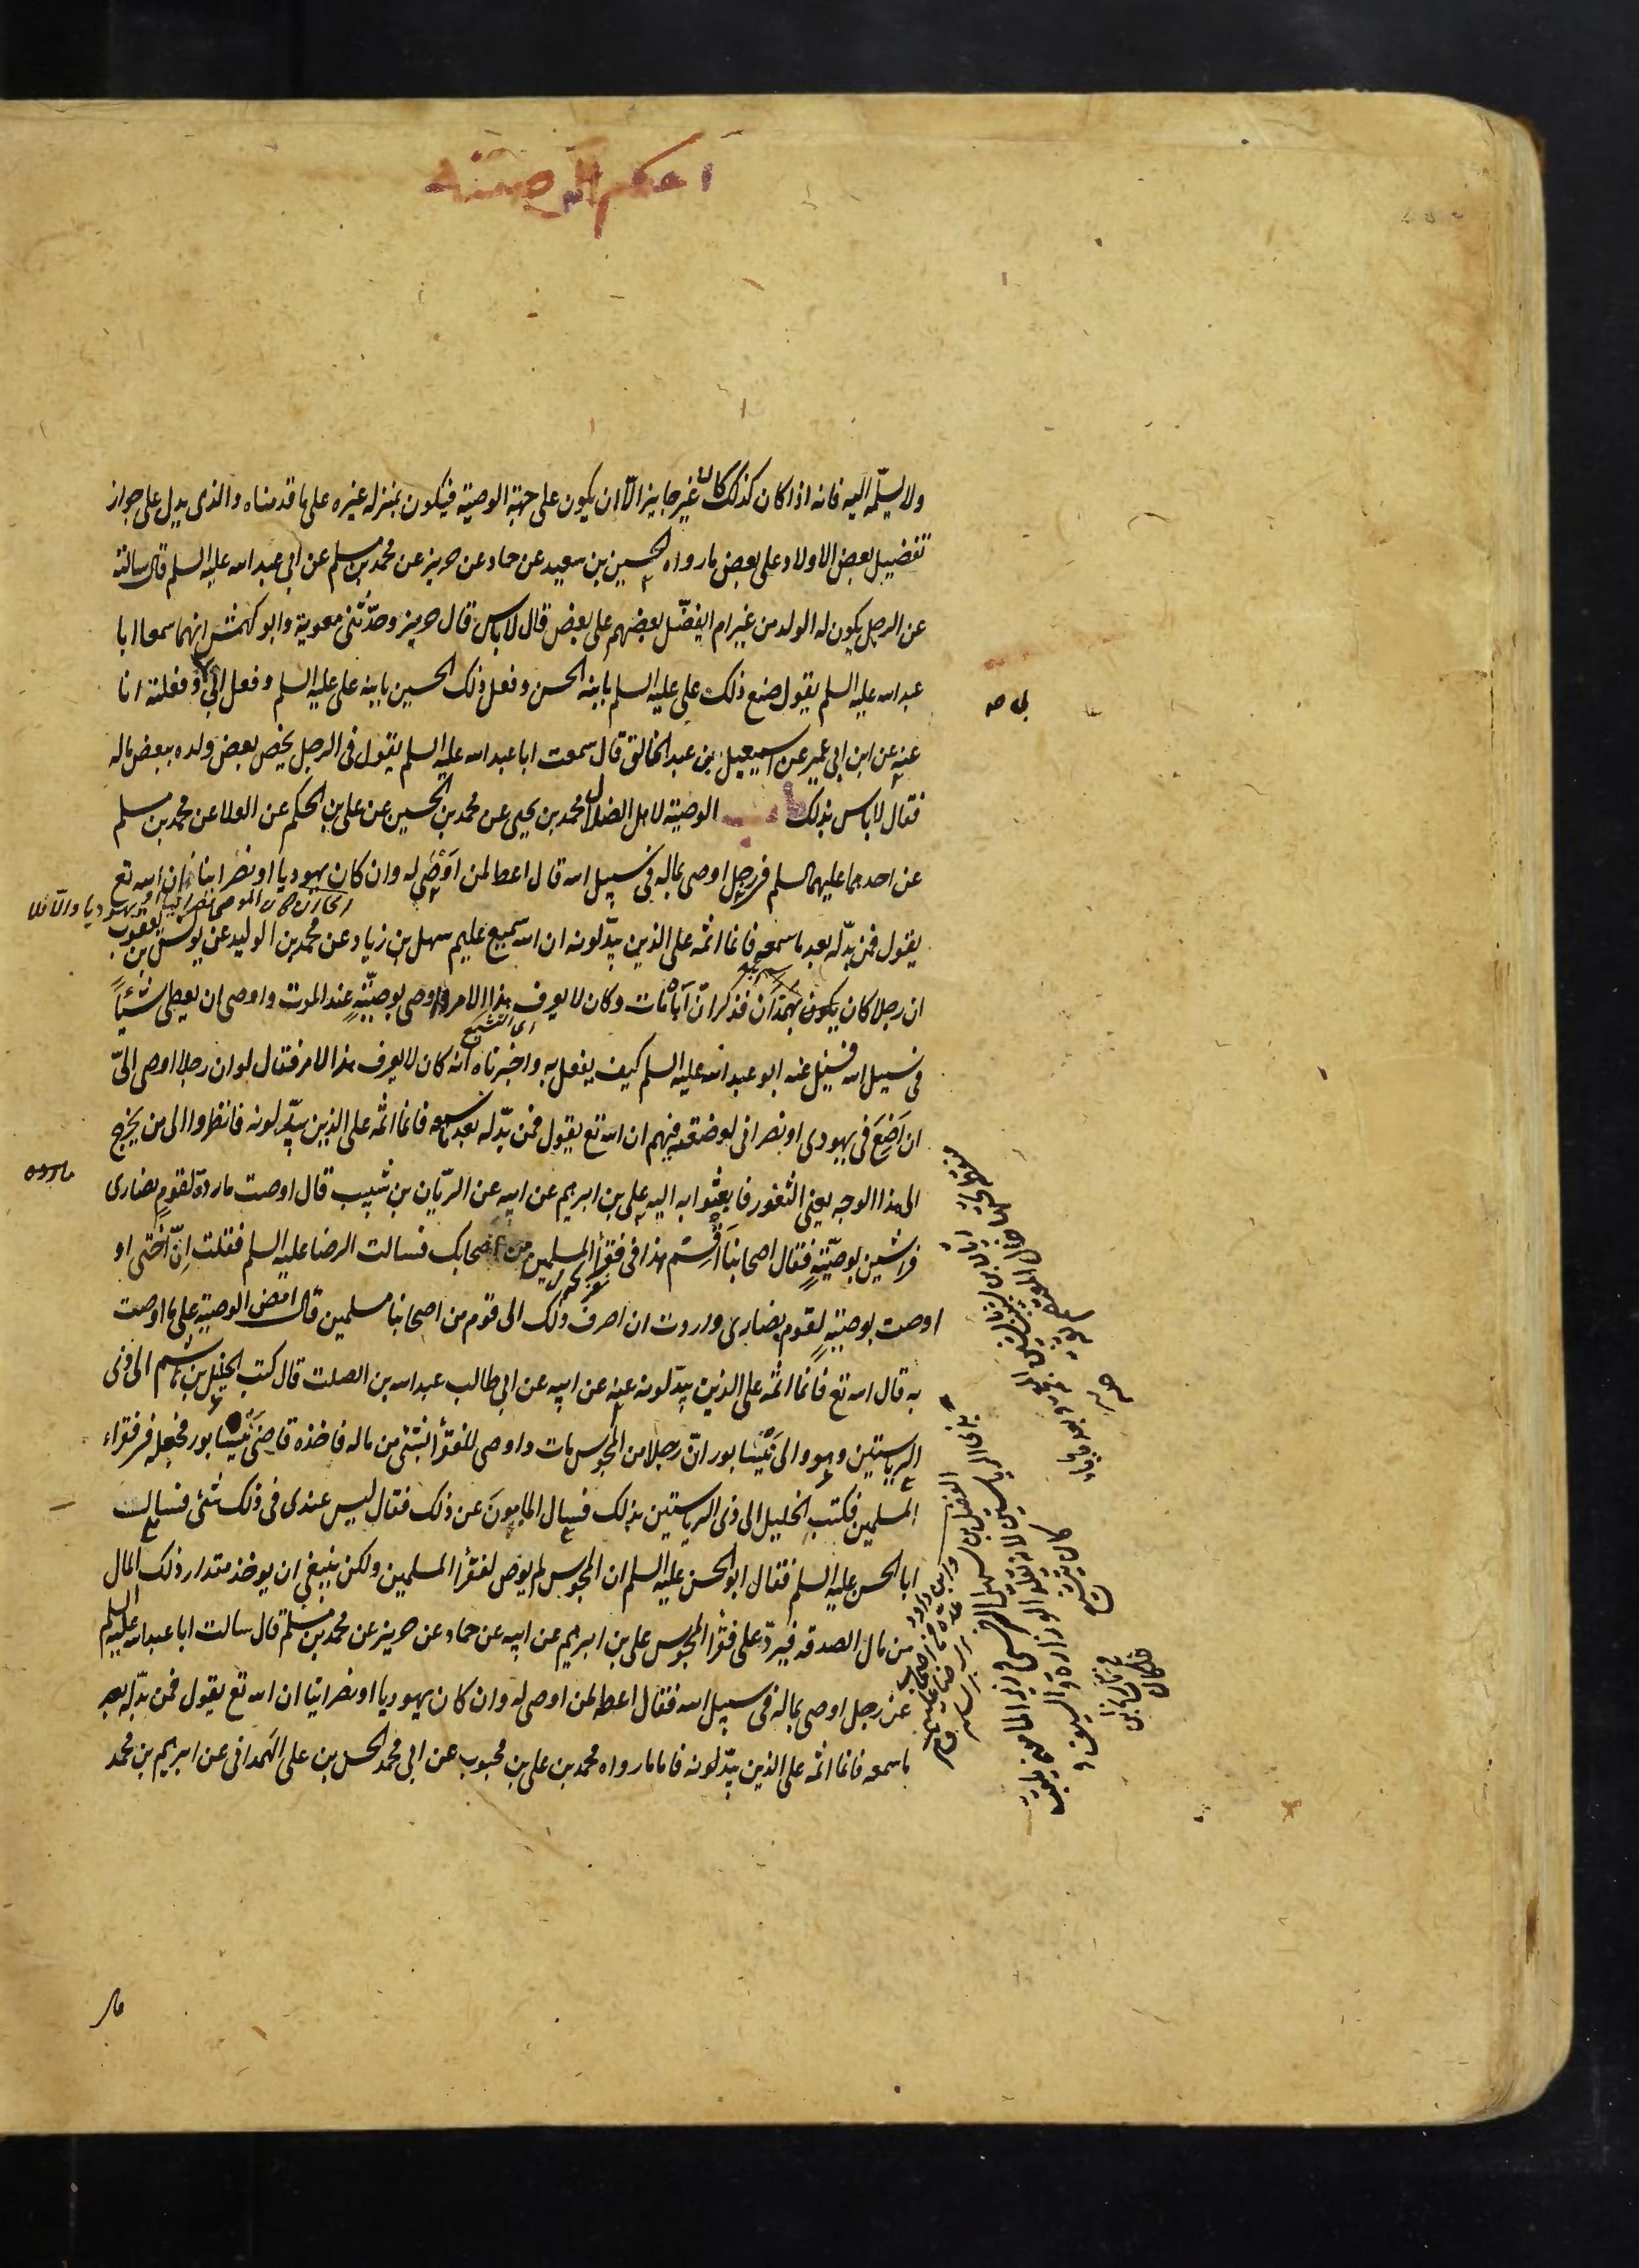 احكام الوصية
ولا يسلّمه اليه فانه اذا كان كذلك كان غير جايز الّا ان يكون على جهة الوصية فيكون بمنزله غيره على ما قدمناه والذى يدل على جواز
تفضيل بعض الاولاد على بعض ما رواه الحسين بن سعيد عن حماد عن حريز عن محمد بن مسلم عن ابى عبد الله عليه السلم قال سالته
عن الرجل يكون له الولد من غير ام ايفضّل بعضهم على بعض قال لا باس قال حريز وحدّثنى معوية وابو كهمش انهما سمعا ابا
عبد الله عليه السلم يقول صنع ذلك على عليه السلم بابنه الحسن وفعل ذلك الحسين بابنه على عليه السلم وفعل ابى وفعلته انا
عنه عن ابن ابى عمير عن اسمعيل بن عبد الخالق قال سمعت ابا عبد الله عليه السلم يقول فى الرجل يخص بعض ولده ببعض ماله
فقال لا باس بذلك الوصية لاهل الضلال محمد بن يحيى عن محمد بن الحسين عن على بن الحكم عن العلا عن محمد بن مسلم
عن احدهما عليهما السلم فى رجل اوصى بماله فى سبيل الله قال اعط لمن اوصى له وان كان يهوديا او نصرانيا ان الله تع
يقول فمن بدّله بعد ما سمعه فانما اثمه على الذين يبدّلونه ان الله سميع عليم سهل بن زياد عن محمد بن الوليد عن يونس بن يعقوب
ان رجلا كان يكون بهمدان فذكر انّ اباه مات وكان لا يعرف هذا الامر واوصى بوصيّته عند الموت واوصى ان يعطى شيئاً
فى سبيل الله فسئل عنه ابو عبد الله عليه السلم كيف يفعل به واخبرناه انه كان لا يعرف هذا الامر فقال لو ان رجلا اوصى الىّ
ان اضع فى يهودى او نصرانى لوضعته فيهم ان الله تع يقول فمن بدّله بعد ما سمعه فانما اثمه على الذين يبدّلونه فانظروا الى من يخرج
الى هذا الوجه يعنى الثغور فابعثوا به اليه على بن ابرهيم عن ابيه عن الريّان بن شبيب قال اوصت ماردة لقوم نصارى
فراشين بوصيّة فقال اصحابنا اقسم هذا فى فقرآء المسلمين من اصحابك فسالت الرضا عليه السلم فقلت انّ اختى او
اوصت بوصية لقوم نصارى واردت ان اصرف ذلك الى قوم من اصحابنا مسلمين قال امض الوصية على ما اوصت
به قال الله تع فانما اثمه على الذين يبدّلونه عنه عن ابيه عن ابى طالب عبد الله بن الصلت قال كتب الخليل بن هاشم الى ذى
الرياستين وهو والى نيسابور انّ رجلا من المجوس مات واوصى للفقرآء بشئ من ماله فاخذه قاضى نيسابور فجعله فى فقراء
المسلمين فكتب الخليل الى ذى الرياستين بذلك فسال المامون عن ذلك فقال ليس عندى فى ذلك شئى فسالت
ابا الحسن عليه السلم فقال ابو الحسن عليه السلم ان المجوس لم يوص لفقرآء المسلمين ولكن ينبغى ان يوخذ مقدار ذلك المال
من مال الصدقه فيردّ على فقرآء المجوس على بن ابرهيم عن ابيه عن حماد عن حريز عن محمد بن مسلم قال سالت ابا عبد الله عليه السلم
عن رجل اوصى بماله فى سبيل الله فقال اعطه لمن اوصى له وان كان يهوديا او نصرانيا ان الله تع يقول فمن بدّله بعد
ما سمعه فانما اثمه على الذين يبدّلونه فاما ما رواه محمد بن على بن محبوب عن ابى محمد الحسن بن على الهمدانى عن ابرهيم بن محمد